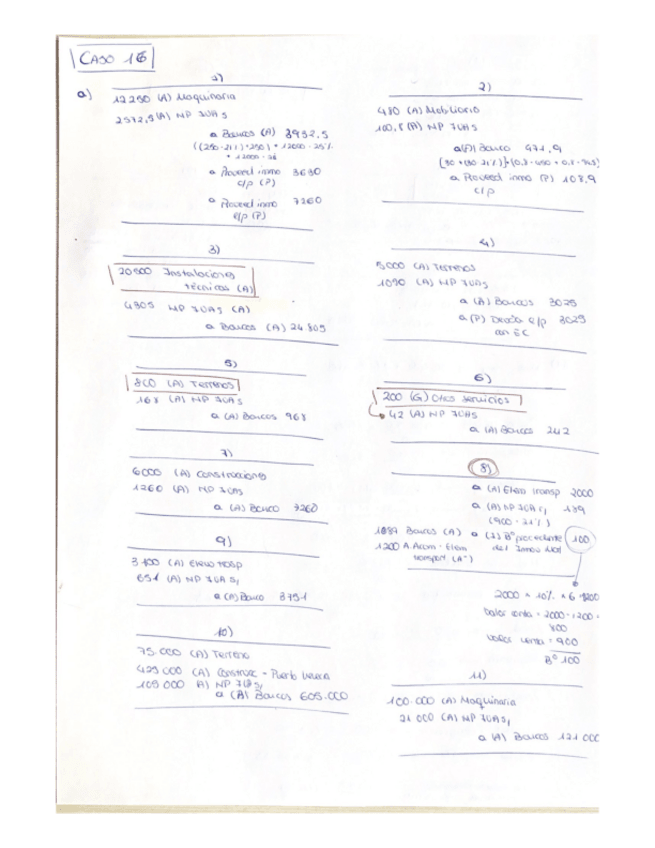 CASO 16
a)
1)
12250 (A) Maquinaria
2572,5 (A) HP IVA S
a Bancos (A) 3932,5
((250·21%)+250) + 12000·25%
a Proveed inmo 3630
c/p (P)
a Proveed inmo 7260
l/p (P)
2)
480 (A) Mobiliario
100,8 (A) HP IVAS
a (A) Banco 471,9
a Proveed inmo (P) 108,9
c/p
3)
20500 Instalaciones
técnicas (A)
4305 HP IVAS (A)
a Bancos (A) 24.805
4)
5000 (A) Terrenos
1050 (A) HP IVAS
a (A) Bancos 3025
a (P) Deuda c/p 3025
con EC
5)
800 (A) Terrenos
168 (A) HP IVAS
a (A) Bancos 968
6)
200 (G) Otros servicios
42 (A) HP IVAS
a (A) Bancos 242
7)
6000 (A) Construcciones
1260 (A) HP IVAS
a (A) Banco 7260
8)
a (A) Elem transp 2000
a (A) HP IVA r, 189
(900·21%)
1089 Bancos (A) a (I) Bº procedente 100
1200 A.Acum. Elem del Inmov Mat
transport (A-)
2000 × 10% × 6 = 1200
Valor conta = 2000 - 1200 =
800
Valor venta = 900
Bº 100
9)
3100 (A) Elem transp
651 (A) HP IVA S,
a (A) Banco 3751
10)
75.000 (A) Terreno
425 000 (A) Construc -
105 000 A) HP IVA S,
a (A) Bancos 605.000
11)
100.000 (A) Maquinaria
21 000 (A) HP IVA S,
a (A) Bancos 121 000